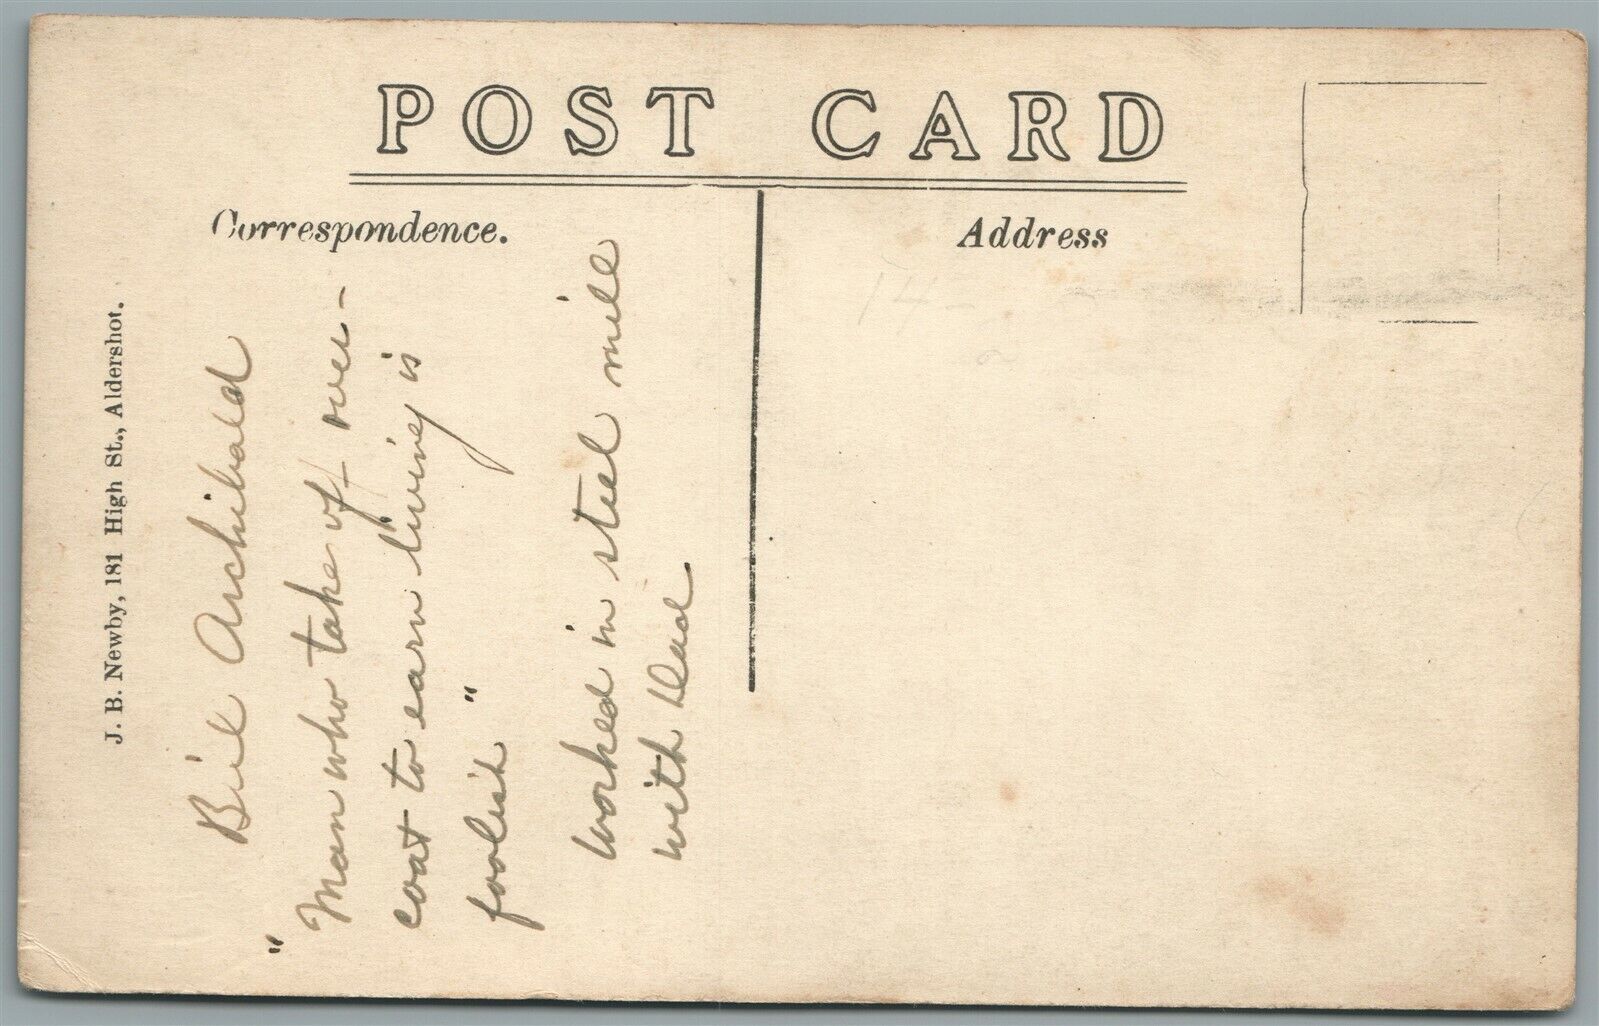 POST CARD
Correspondence.
Address
J. B. Newby, 181 High St., Aldershot.
Bill Archibald
"Man who take of over-
coat to earn living is
foolish"
Worked in steel mill
with Dad
14-